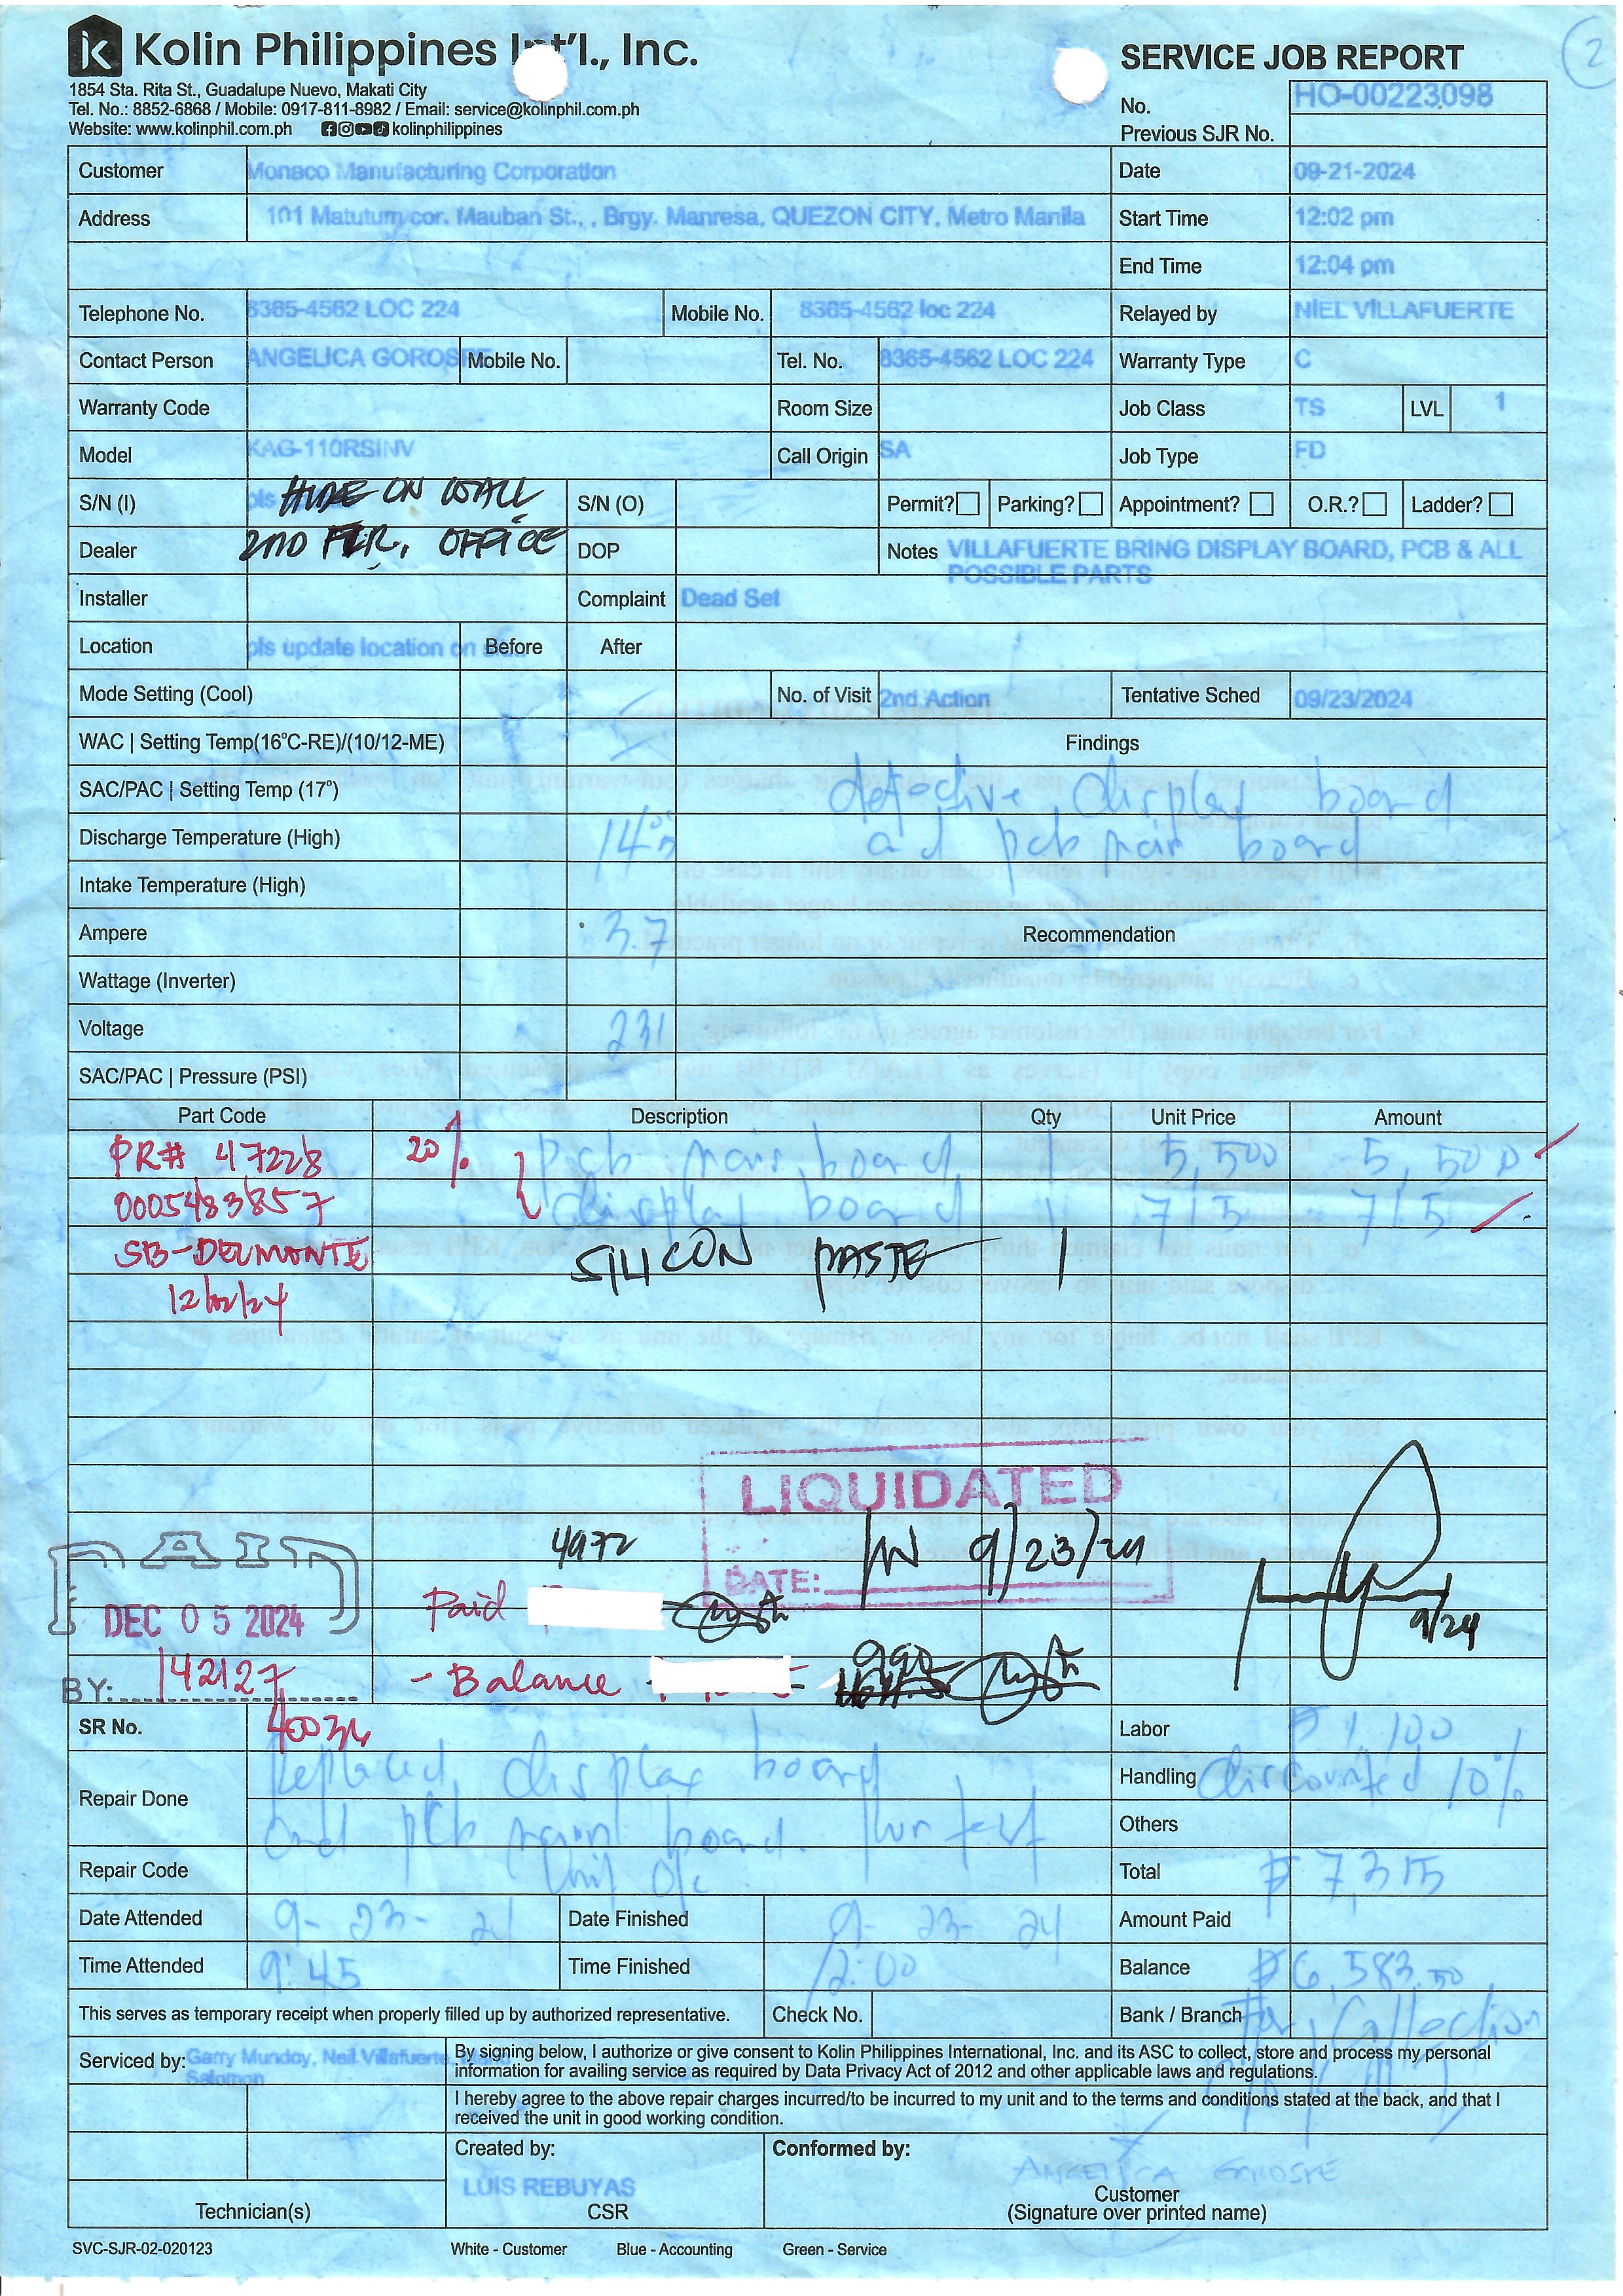 Kolin Philippines Int'l., Inc.
1854 Sta. Rita St., Guadalupe Nuevo, Makati City
Tel. No.: 8852-6868 / Mobile: 0917-811-8982 / Email: service@kolinphil.com.ph
Website: www.kolinphil.com.ph kolinphilippines
SERVICE JOB REPORT
2
No. HO-00223098
Previous SJR No.
Customer Monaco Manufacturing Corporation Date 09-21-2024
Address 101 Matutum cor. Mauban St., , Brgy. Manresa, QUEZON CITY, Metro Manila Start Time 12:02 pm
End Time 12:04 pm
Telephone No. 8365-4562 LOC 224 Mobile No. 8365-4562 loc 224 Relayed by NIEL VILLAFUERTE
Contact Person ANGELICA GOROSPE Mobile No. Tel. No. 8365-4562 LOC 224 Warranty Type C
Warranty Code Room Size Job Class TS LVL 1
Model KAG-110RSINV Call Origin SA Job Type FD
S/N (I) pls HIDE ON WALL S/N (O) Permit? Parking? Appointment? O.R.? Ladder?
Dealer 2ND FLR. OFFICE DOP Notes VILLAFUERTE BRING DISPLAY BOARD, PCB & ALL
POSSIBLE PARTS
Installer Complaint Dead Set
Location pls update location on Before After
Mode Setting (Cool) No. of Visit 2nd Action Tentative Sched 09/23/2024
WAC | Setting Temp(16°C-RE)/(10/12-ME) Findings
SAC/PAC | Setting Temp (17°) defective display board
Discharge Temperature (High) 14 and pcb main board
Intake Temperature (High)
Ampere 3.7 Recommendation
Wattage (Inverter)
Voltage 231
SAC/PAC | Pressure (PSI)
Part Code Description Qty Unit Price Amount
PR# 47228 20% pcb main board 1 5,500 5,500
0005483857 display board 1 715 715
SB-DELMONTE SILICON PASTE 1
12/02/24
LIQUIDATED
DATE: 9/23/24
4972
PAID
DEC 05 2024
Paid
9/24
BY: 142127
- Balance 990
SR No. 40036 Labor ₱ 1,100
Repair Done Replaced display board Handling discounted 10%
and pcb main board. Run test Others
Repair Code Unit Ok Total ₱ 7,315
Date Attended 9-23-24 Date Finished 9-23-24 Amount Paid
Time Attended 9:45 Time Finished 12:00 Balance ₱ 6,583.50
This serves as temporary receipt when properly filled up by authorized representative. Check No. Bank / Branch For Collection
Serviced by: Garry Munday, Neil Villafuerte
Salomon
By signing below, I authorize or give consent to Kolin Philippines International, Inc. and its ASC to collect, store and process my personal
information for availing service as required by Data Privacy Act of 2012 and other applicable laws and regulations.
I hereby agree to the above repair charges incurred/to be incurred to my unit and to the terms and conditions stated at the back, and that I
received the unit in good working condition.
Created by: Conformed by:
LUIS REBUYAS ANGELICA GOROSPE
Technician(s) CSR Customer
(Signature over printed name)
SVC-SJR-02-020123 White - Customer Blue - Accounting Green - Service